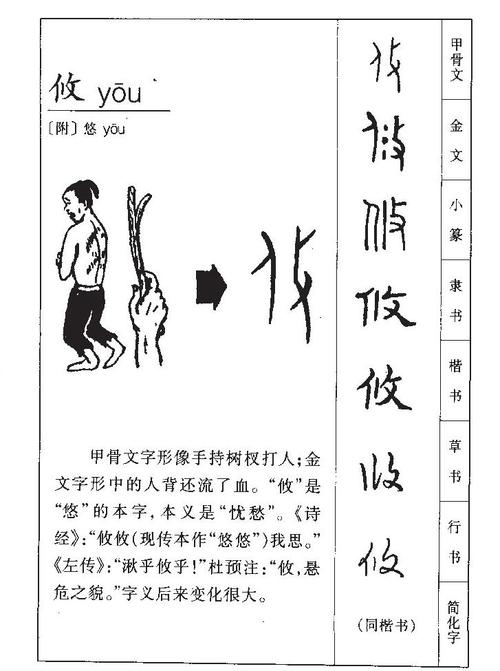 攸 yōu
〔附〕悠 yōu
甲骨文字形像手持树杈打人；金
文字形中的人背还流了血。“攸”是
“悠”的本字，本义是“忧愁”。《诗
经》：“攸攸（现传本作“悠悠”）我思。”
《左传》：“湫乎攸乎！”杜预注：“攸，悬
危之貌。”字义后来变化很大。
攸 甲骨文
攸 金文
攸 小篆
攸 隶书
攸 楷书
攸 草书
攸 行书
（同楷书） 简化字